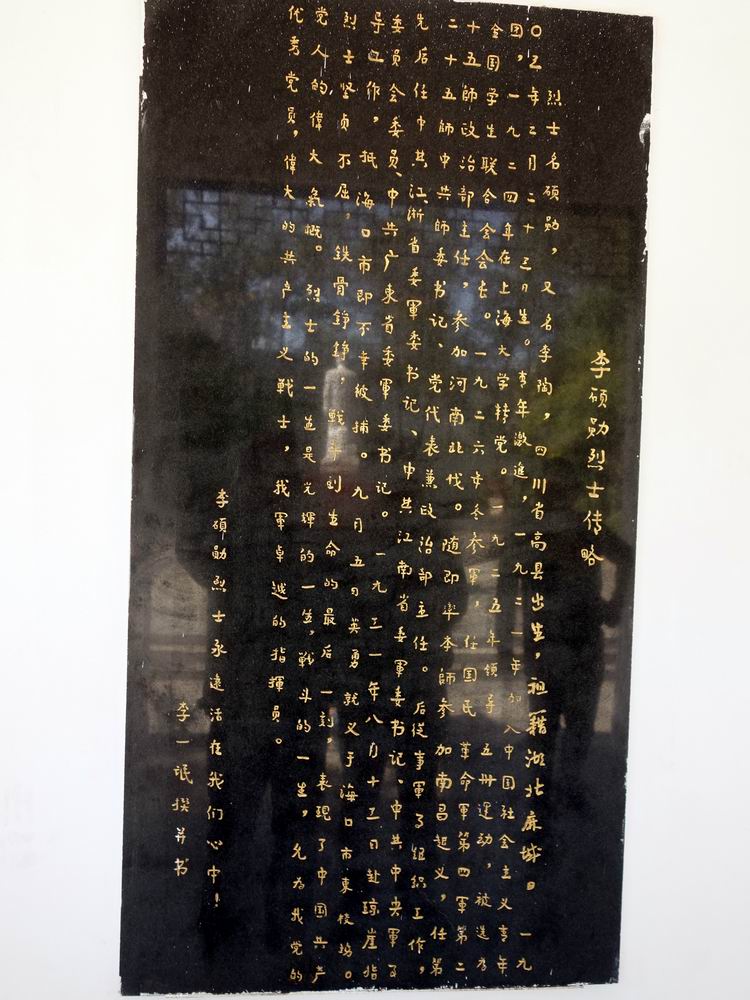 李硕勋烈士传略
烈士名硕勋，又名李陶，四川省高县出生，祖籍湖北麻城。一九
〇三年二月二十三日生。青年激進，一九二一年加入中国社会主义青年
团，一九二四年在上海大学转党。一九二五年领导五卅運动，被选为
全国学生联合会会長。一九二六年冬参軍，任国民革命軍第四軍第二
十五師政治部主任，参加河南北伐。随即率本師参加南昌起义，任第
二十五師中共師委书记、党代表兼政治部主任。后從事軍事组织工作，
先后任中共江浙省委軍委书记、中共江南省委軍委书记、中共中央軍事
委員会委員、中共广東省委軍委书记。一九三一年八月十三日赴琼崖指
导工作，抵海口市即不幸被捕。九月五日英勇就义于海口市東校场。
烈士坚贞不屈，鉄骨錚錚，戦斗到生命的最后一刻，表现了中国共产
党人的偉大氣概。烈士的一生是光輝的一生，戦斗的一生，允为我党的
优秀党員，偉大的共产主义戦士，我軍卓越的指揮員。
李碩勋烈士永遠活在我们心中！
李一氓撰并书